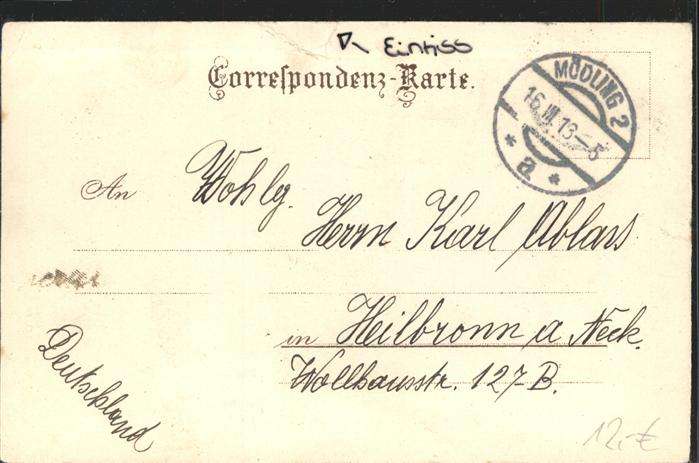 Einriss
Correspondenz-Karte.
MÖDLING 2
16.III.13-5
* a *
An Wohlg.
Herrn Karl Ablass
in Heilbronn a Neck.
Wollhausstr. 127-B.
Deutschland
12,-€